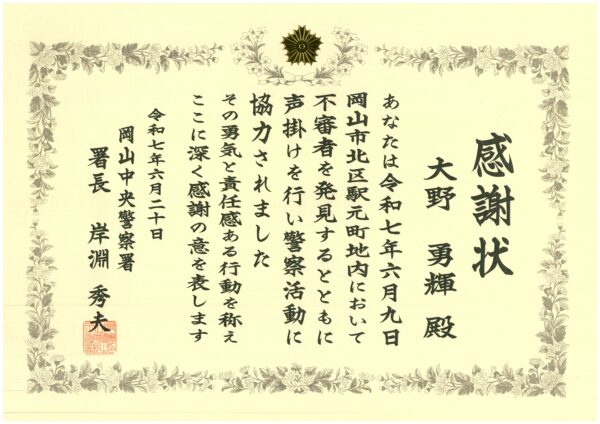 感謝状
大野 勇輝 殿
あなたは令和七年六月九日
岡山市北区駅元町地内において
不審者を発見するとともに
声掛けを行い警察活動に
協力されました
その勇気と責任感ある行動を称え
ここに深く感謝の意を表します
令和七年六月二十日
岡山中央警察署
署長 岸淵 秀夫